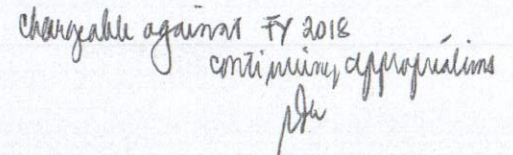 chargeable against FY 2018
continuing appropriations